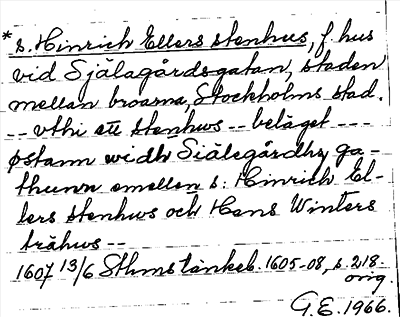 * s. Hinrich Ellers stenhus, f. hus
vid Själagårdsgatan, staden
mellan broarna, Stockholms stad.
-- vthi ett stenhws -- beläget ---
østann widh Siälegårdhz ga-
thunn emellen s: Hinrich El-
lers stenhws och Hans Winters
trähws --
1607 13/6 Sthms tänkeb. 1605-08, s. 218.
orig.
G.E. 1966.